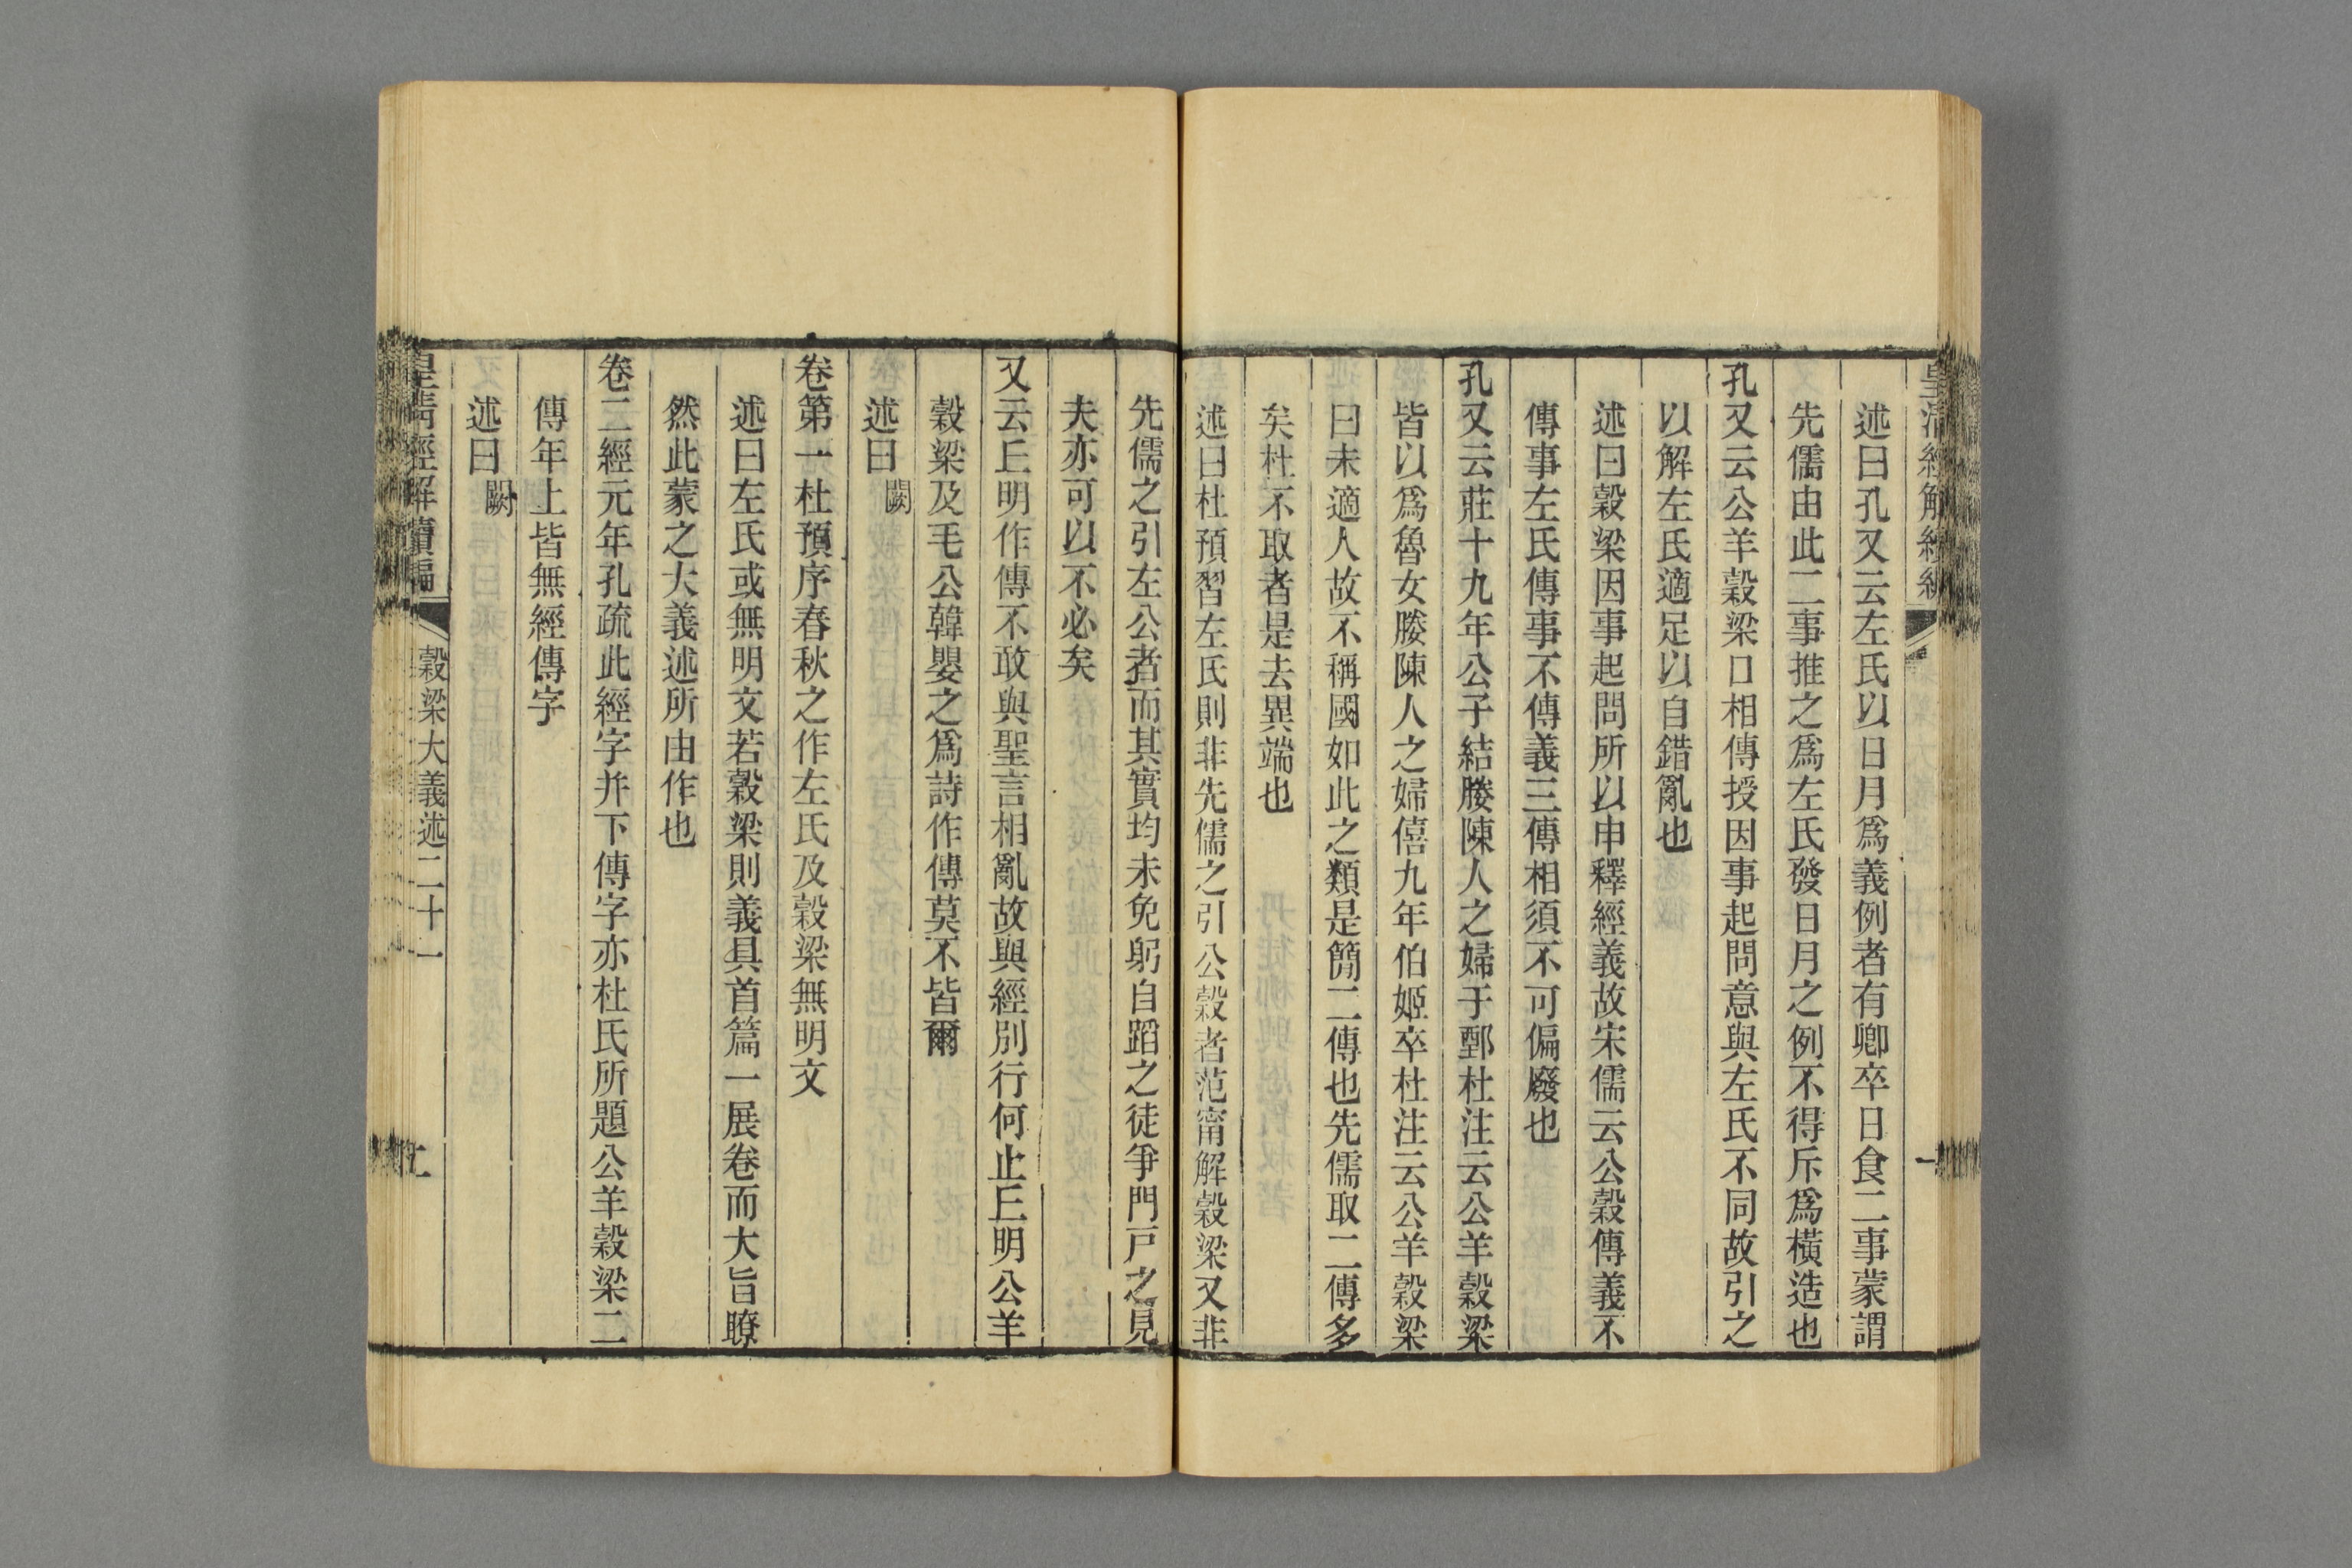 述曰孔又云左氏以日月爲義例者有卿卒日食二事蒙謂
先儒由此二事推之爲左氏發日月之例不得斥爲橫造也
孔又云公羊穀梁口相傳授因事起問意與左氏不同故引之
以解左氏適足以自錯亂也
述曰穀梁因事起問所以申釋經義故宋儒云公穀傳義不
傳事左氏傳事不傳義三傳相須不可偏廢也
孔又云莊十九年公子結媵陳人之婦于鄄杜注云公羊穀梁
皆以爲魯女媵陳人之婦僖九年伯姬卒杜注云公羊穀梁
曰未適人故不稱國如此之類是簡二傳也先儒取二傳多
矣杜不取者是去異端也
述曰杜預習左氏則非先儒之引公穀者范甯解穀梁又非
先儒之引左公者而其實均未免躬自蹈之徒爭門戸之見
夫亦可以不必矣
又云丘明作傳不敢與聖言相亂故與經別行何止丘明公羊
穀梁及毛公韓嬰之爲詩作傳莫不皆爾
述曰闕
卷第一杜預序春秋之作左氏及穀梁無明文
述曰左氏或無明文若穀梁則義具首篇一展卷而大旨瞭
然此蒙之大義述所由作也
卷二經元年孔疏此經字并下傳字亦杜氏所題公羊穀梁二
傳年上皆無經傳字
述曰闕
皇清經解續編 穀梁大義述二十一